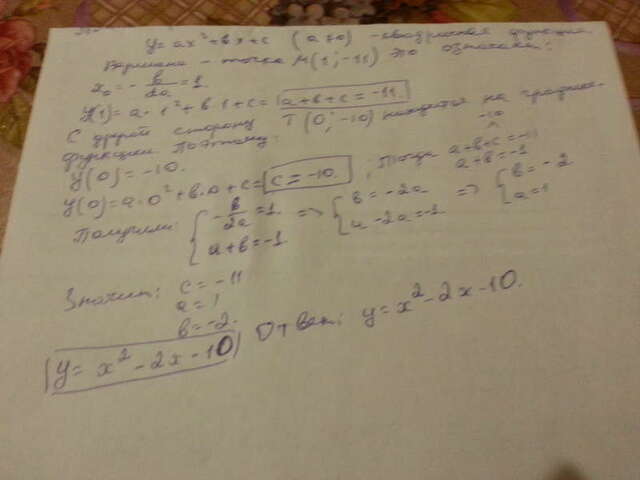 y = ax² + bx + c (a≠0) - квадратная функция
Вершина - точка М(1; -11) это означает:
x₀ = - b/2a = 1
y(1) = a · 1² + b · 1 + c = a + b + c = -11.
С другой стороны T(0; -10) находится на графике
функции поэтому:
y(0) = -10.
y(0) = a · 0² + b · 0 + c = c = -10. ; Тогда a + b + c = -11
-10
a + b = -1
Получим: { - b/2a = 1 => { b = -2a => { b = -2
a + b = -1 a - 2a = -1 a = 1
Значит: c = -11
a = 1
b = -2.
y = x² - 2x - 10 Ответ: y = x² - 2x - 10.